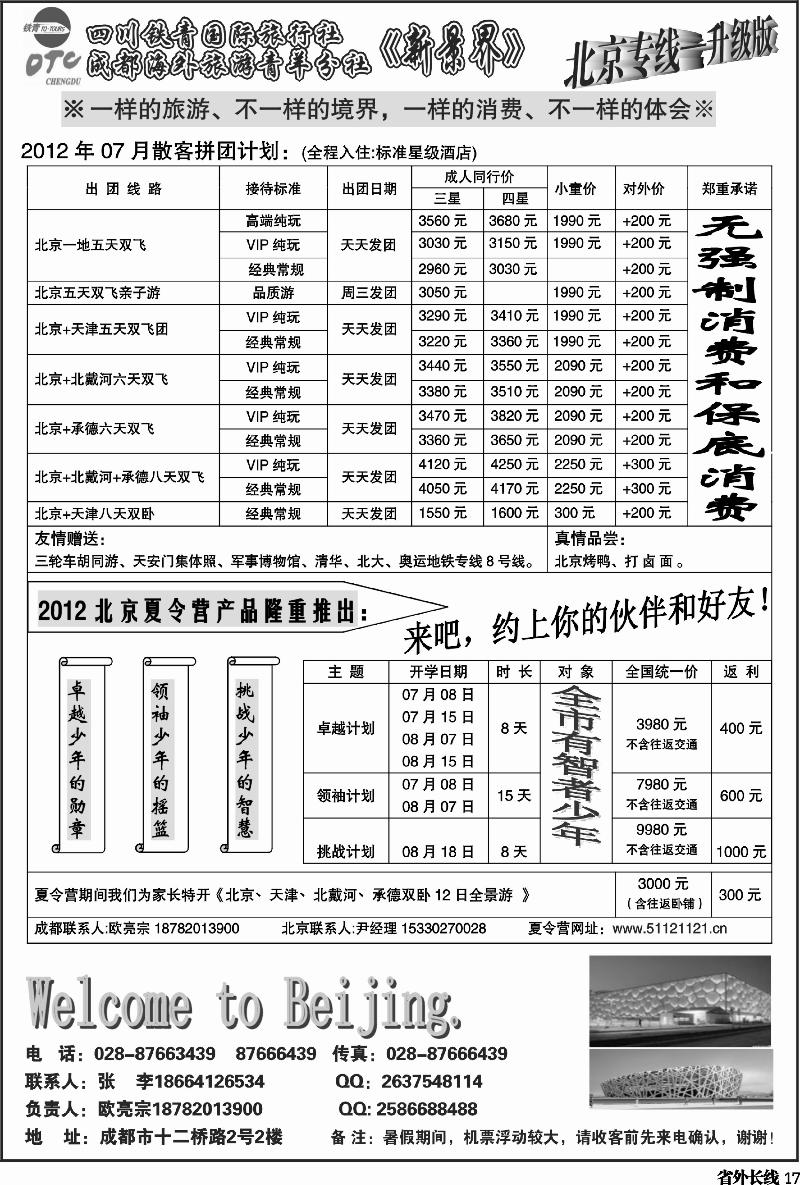 铁青 TQ-TOURS
OTC
CHENGDU
四川铁青国际旅行社
成都海外旅游青羊分社
《新景界》
北京专线—升级版
※一样的旅游、不一样的境界，一样的消费、不一样的体会※
2012 年 07 月散客拼团计划：(全程入住:标准星级酒店)
出 团 线 路 接待标准 出团日期 成人同行价 小童价 对外价 郑重承诺
三星 四星
北京一地五天双飞 高端纯玩 天天发团 3560 元 3680 元 1990 元 +200 元
VIP 纯玩 3030 元 3150 元 1990 元 +200 元
经典常规 2960 元 3030 元 +200 元
北京五天双飞亲子游 品质游 周三发团 3050 元 1990 元 +200 元
北京+天津五天双飞团 VIP 纯玩 天天发团 3290 元 3410 元 1990 元 +200 元
经典常规 3220 元 3360 元 1990 元 +200 元
北京+北戴河六天双飞 VIP 纯玩 天天发团 3440 元 3550 元 2090 元 +200 元
经典常规 3380 元 3510 元 2090 元 +200 元
北京+承德六天双飞 VIP 纯玩 天天发团 3470 元 3820 元 2090 元 +200 元
经典常规 3360 元 3650 元 2090 元 +200 元
北京+北戴河+承德八天双飞 VIP 纯玩 天天发团 4120 元 4250 元 2250 元 +300 元
经典常规 4050 元 4170 元 2250 元 +300 元
北京+天津八天双卧 经典常规 天天发团 1550 元 1600 元 300 元 +200 元
无强制消费和保底消费
友情赠送：
三轮车胡同游、天安门集体照、军事博物馆、清华、北大、奥运地铁专线 8 号线。
真情品尝：
北京烤鸭、打卤面。
2012 北京夏令营产品隆重推出：
来吧，约上你的伙伴和好友！
卓越少年的勋章
领袖少年的摇篮
挑战少年的智慧
主 题 开学日期 时 长 对 象 全国统一价 返 利
卓越计划 07 月 08 日 07 月 15 日 08 月 07 日 08 月 15 日 8 天 3980 元 不含往返交通 400 元
领袖计划 07 月 08 日 08 月 07 日 15 天 7980 元 不含往返交通 600 元
挑战计划 08 月 18 日 8 天 9980 元 不含往返交通 1000 元
全市有智者少年
夏令营期间我们为家长特开《北京、天津、北戴河、承德双卧 12 日全景游 》 3000 元 （含往返卧铺） 300 元
成都联系人:欧亮宗 18782013900 北京联系人:尹经理 15330270028 夏令营网址：www.51121121.cn
Welcome to Beijing.
电 话：028-87663439 87666439 传真：028-87666439
联系人：张 李18664126534 QQ：2637548114
负责人：欧亮宗18782013900 QQ: 2586688488
地 址：成都市十二桥路2号2楼 备注：暑假期间，机票浮动较大，请收客前先来电确认，谢谢！
省外长线 17